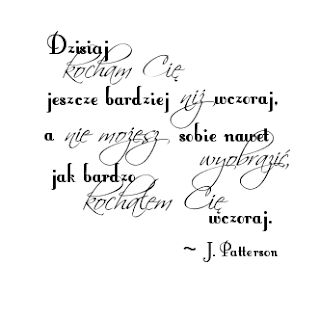 Dzisiaj
kocham Cię
jeszcze bardziej niż wczoraj,
a nie możesz sobie nawet
wyobrazić,
jak bardzo
kochałem Cię
wczoraj.
~ J. Patterson